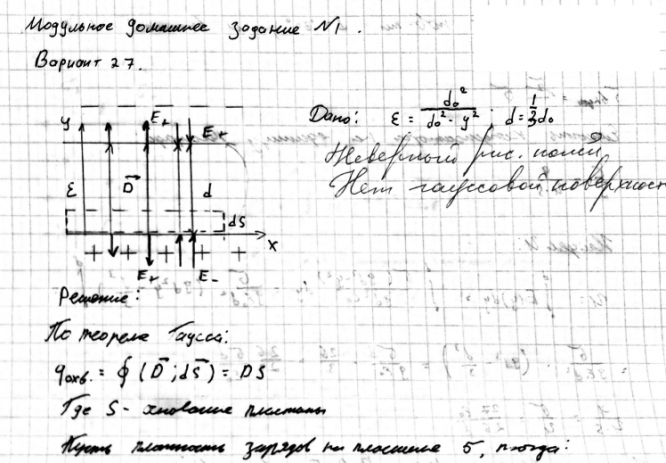 Модульное домашнее задание №1.
Вариант 27.
Дано: ε = d₀² / (d₀² - y²) ; d = 1/3 d₀
Неверный рис. полей
Нет гауссовой поверхност
y
E₊
E₊
ε
D⃗
d
dS
x
+ + + + +
E₊
E₋
Решение:
По теореме Гаусса:
qохв. = ∮ (D⃗; dS⃗) = DS
Где S - основание пластины
Пусть плотность зарядов на пластине σ, тогда: